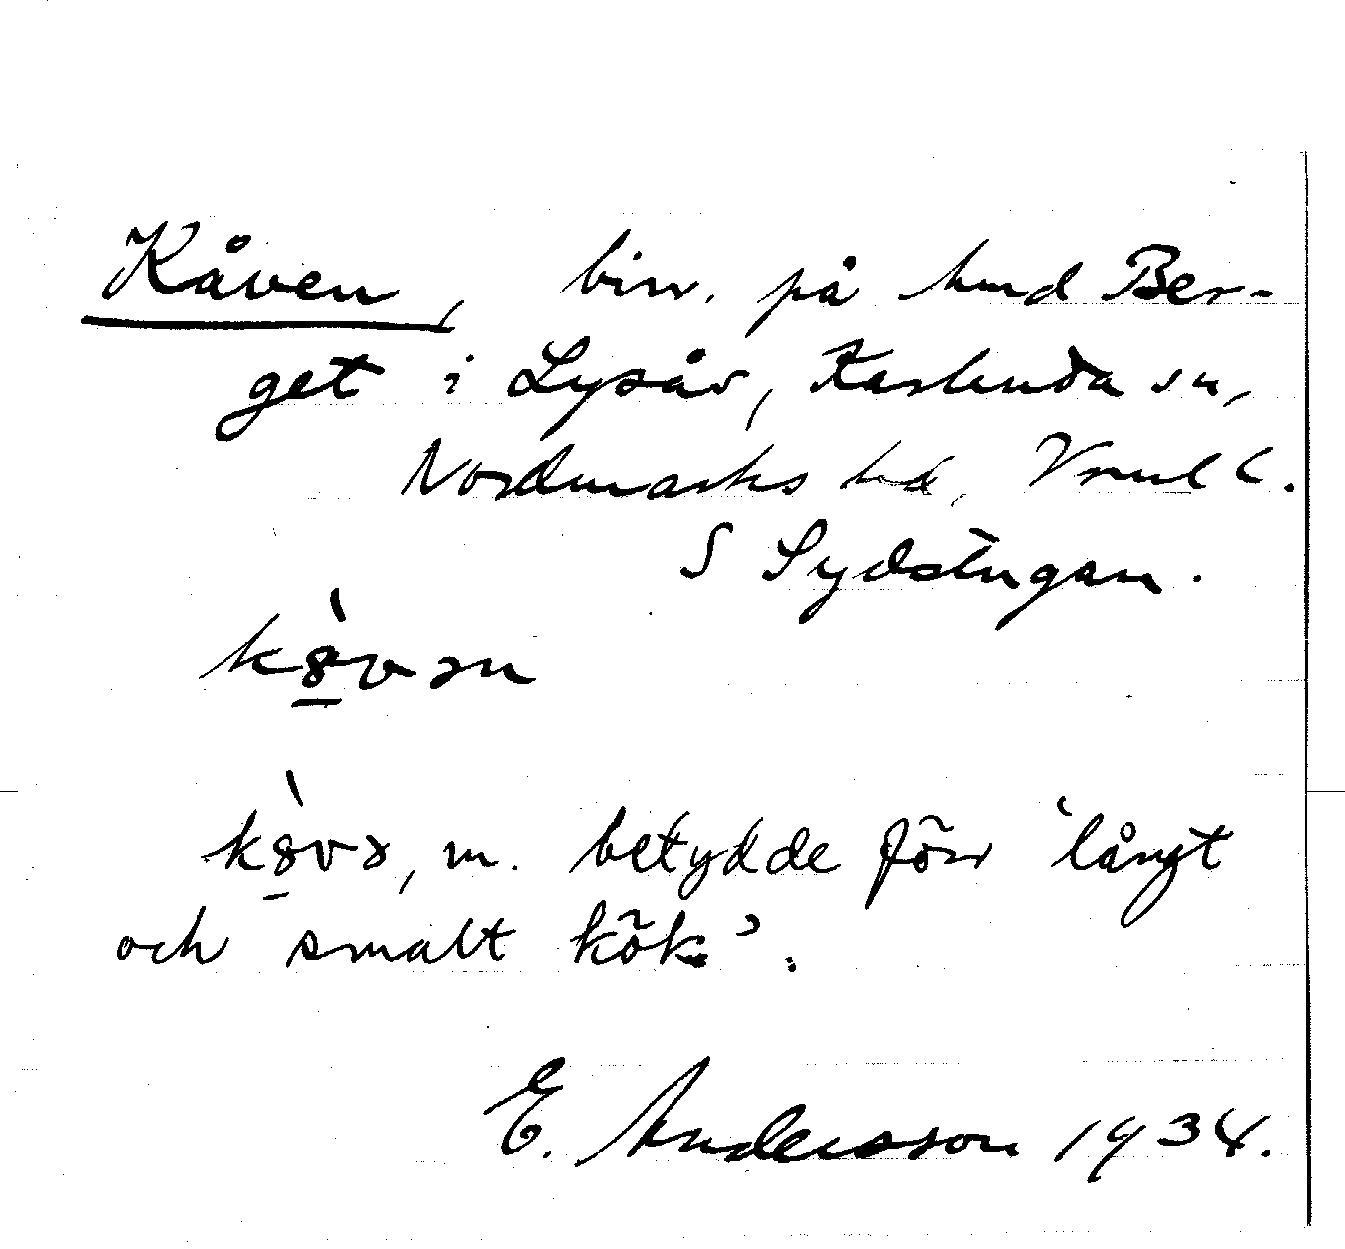 Kåven, binr. på hmd Ber-
get i Lysås, Karlanda sn,
Nordmarks hd, Vrml.
S Sydstugan.
kòvən
kòvə, m. betydde förr 'långt
och smalt kök'.
E. Andersson 1934.